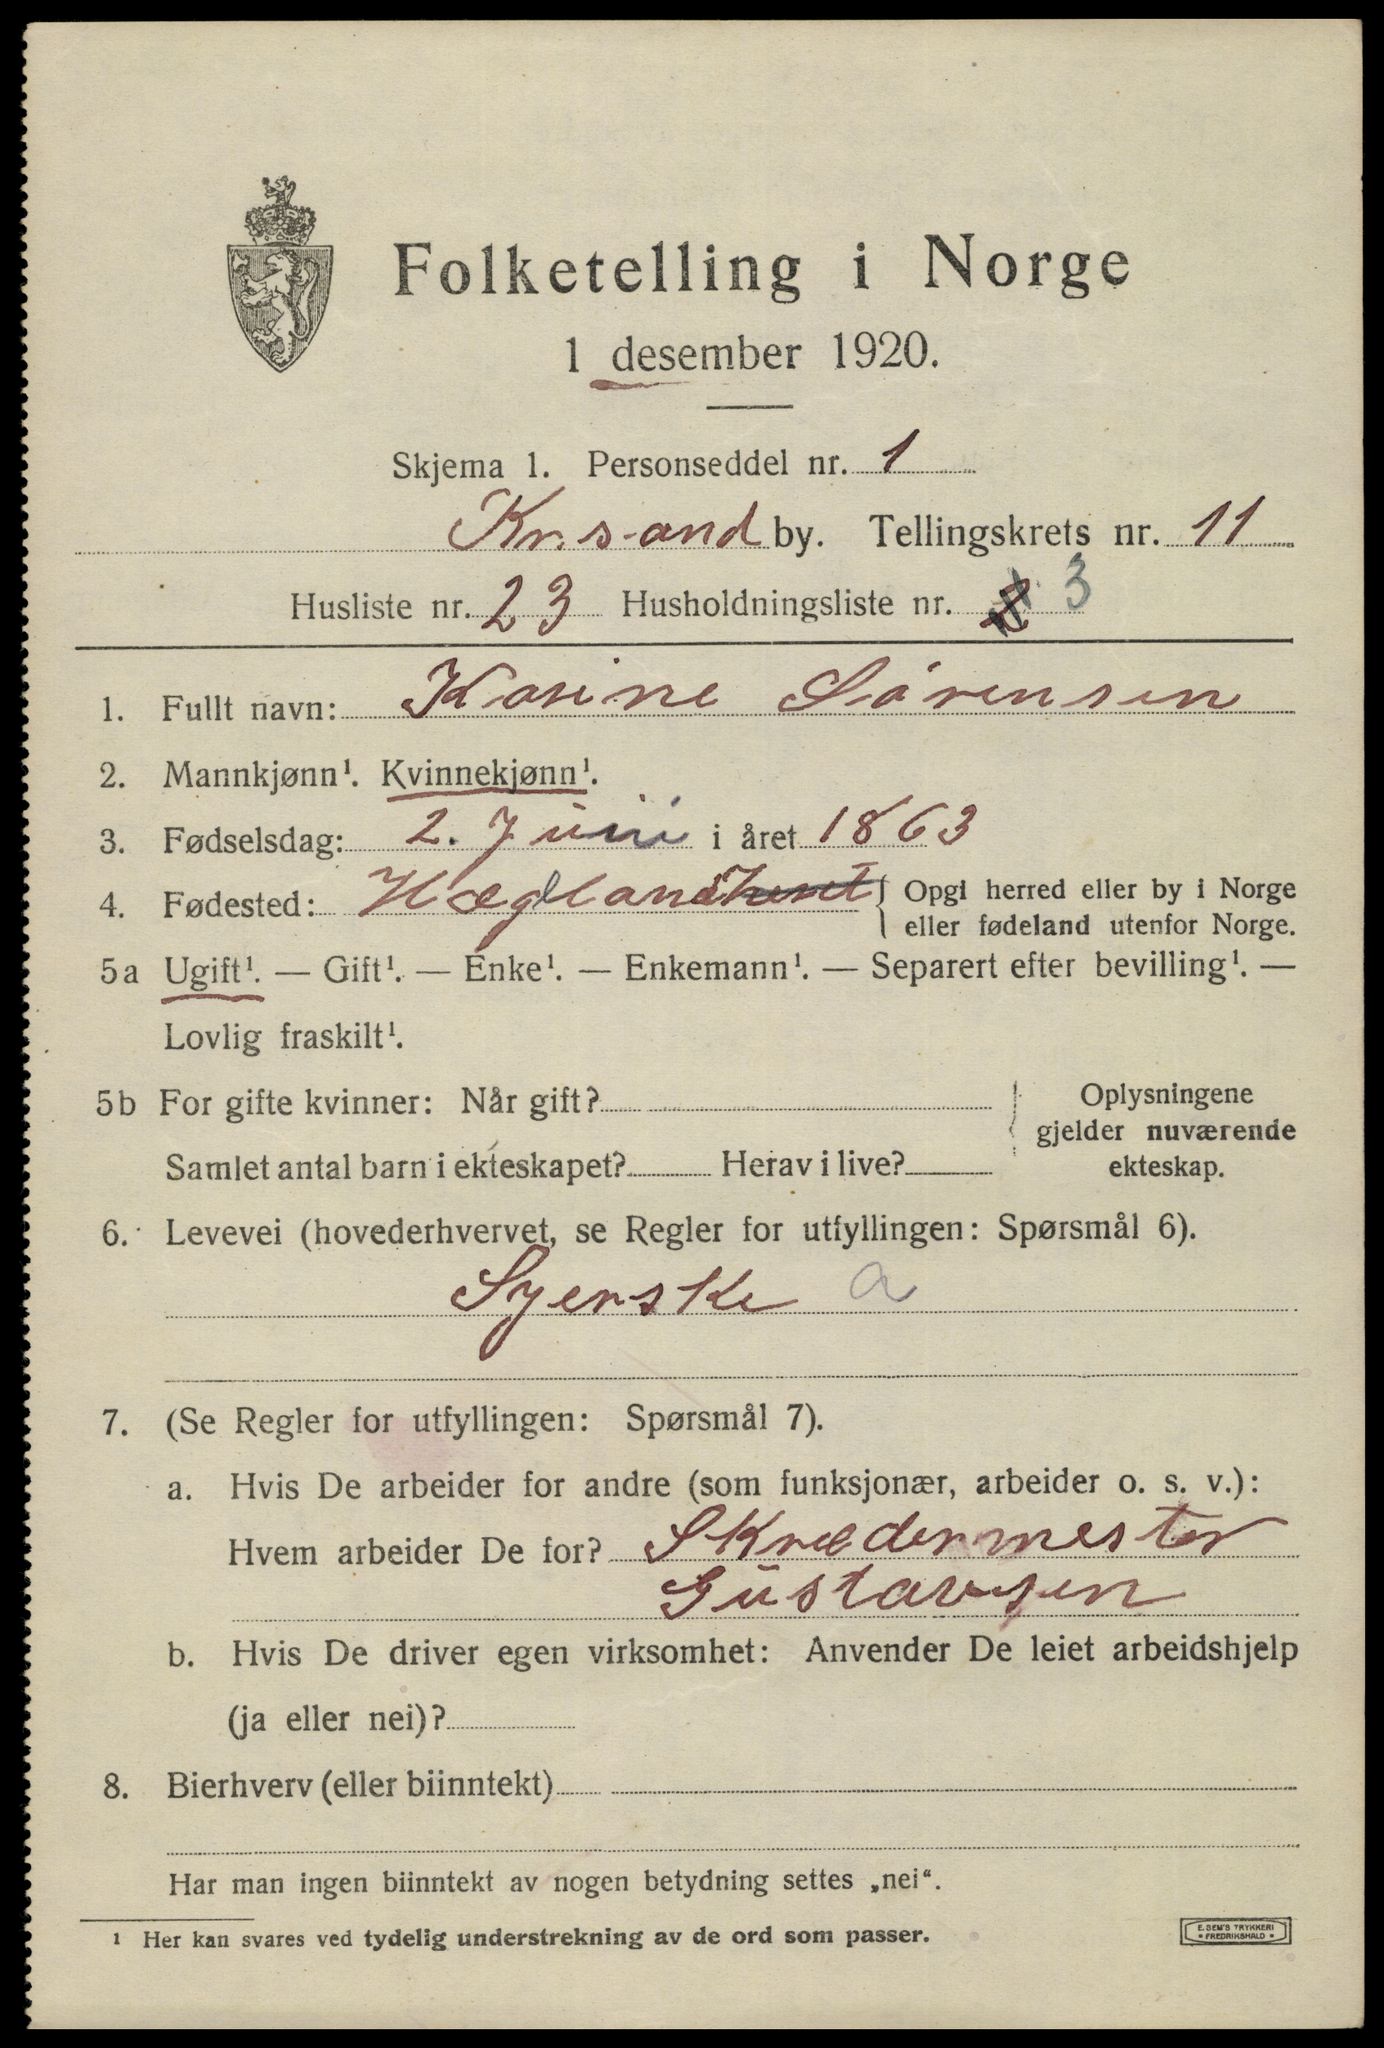 Folketelling i Norge
1 desember 1920.
Skjema 1. Personseddel nr. 1
Kr.sand by. Tellingskrets nr. 11
Husliste nr. 23 Husholdningsliste nr. 3
1. Fullt navn: Karine Sörensen
2. Mannkjønn¹. Kvinnekjønn¹.
3. Fødselsdag: 2. Juni i året 1863
4. Fødested: Hægland { Opgi herred eller by i Norge
eller fødeland utenfor Norge.
5a Ugift¹. — Gift¹. — Enke¹. — Enkemann¹. — Separert efter bevilling¹. —
Lovlig fraskilt¹.
5b For gifte kvinner: Når gift?
Samlet antal barn i ekteskapet? Herav i live?
Oplysningene
gjelder nuværende
ekteskap.
6. Levevei (hovederhvervet, se Regler for utfyllingen: Spørsmål 6).
Syerske a
7. (Se Regler for utfyllingen: Spørsmål 7).
a. Hvis De arbeider for andre (som funksjonær, arbeider o. s. v.):
Hvem arbeider De for? Skrædermester
Gustavsen
b. Hvis De driver egen virksomhet: Anvender De leiet arbeidshjelp
(ja eller nei)?
8. Bierhverv (eller biinntekt)
Har man ingen biinntekt av nogen betydning settes „nei“.
¹ Her kan svares ved tydelig understrekning av de ord som passer.
E. SEM'S TRYKKERI
FREDRIKSHALD